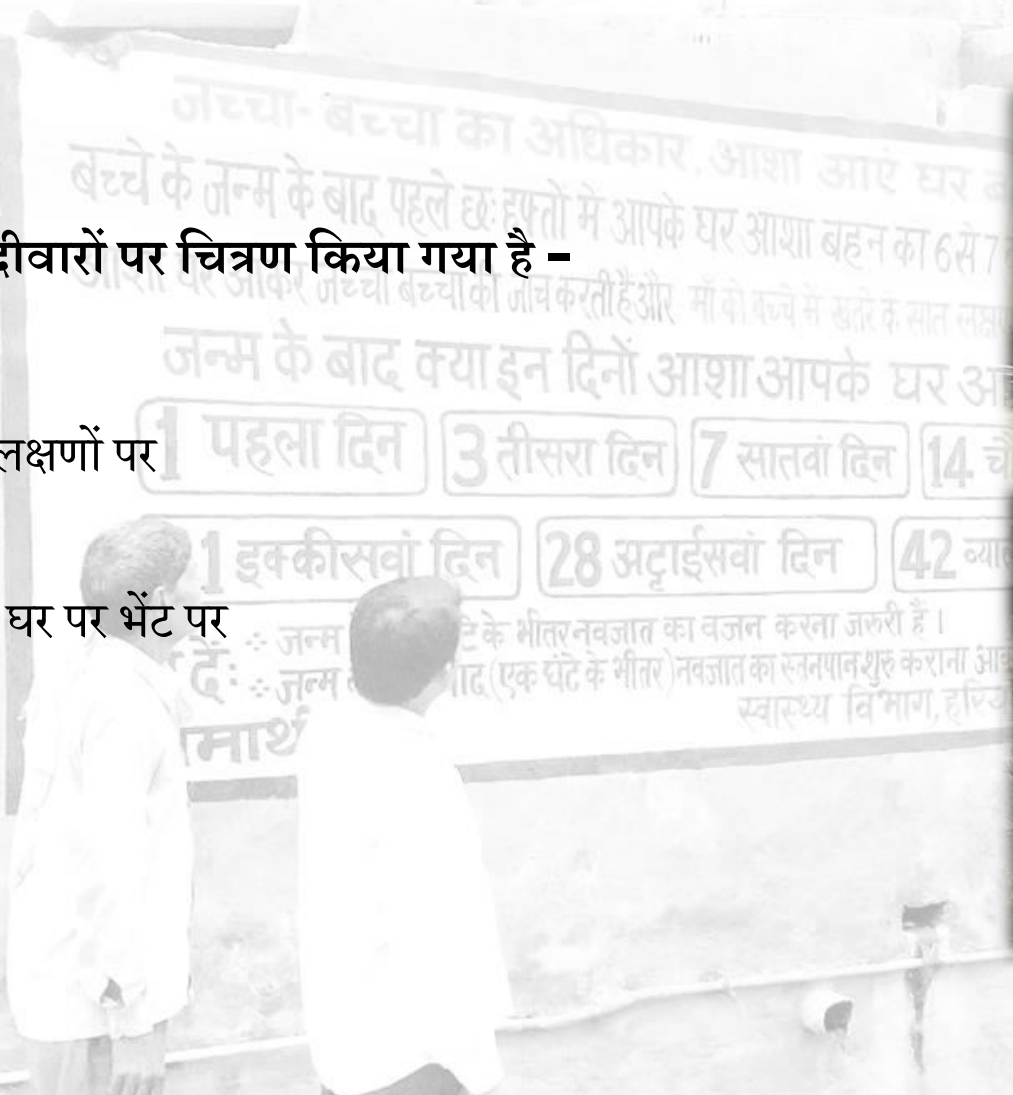 जच्चा-बच्चा का अधिकार, आशा आएं घर
बच्चे के जन्म के बाद पहले छः हफ्तों में आपके घर आशा बहन का 6 से 7
दीवारों पर चित्रण किया गया है –
आशा घर आकर जच्चा बच्चा की जांच करती है और माँ को बच्चे में खतरे के सात
जन्म के बाद क्या इन दिनों आशा आपके घर
लक्षणों पर
1 पहला दिन 3 तीसरा दिन 7 सातवां दिन 14
1 इक्कीसवां दिन 28 अट्ठाईसवां दिन 42
घर पर भेंट पर
जन्म के भीतर नवजात का वजन करना जरुरी है।
जन्म (एक घंटे के भीतर) नवजात का स्तनपान शुरु कराना
स्वास्थ्य विभाग,